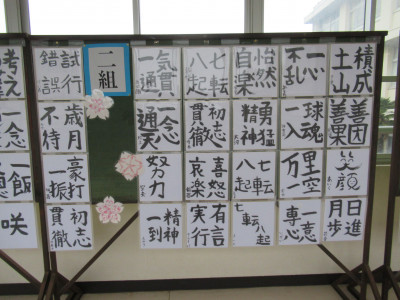 二組
積土成山
一心不乱
怡然自楽
七転八起
一気通貫
試行錯誤
善因善果
一球入魂
初志貫徹
一念通天
歳月不待
笑顔
万里一空
七転八起
喜怒哀楽
努力
豪打一振
日進月歩
一意専心
七転八起
有言実行
精神一到
初志貫徹